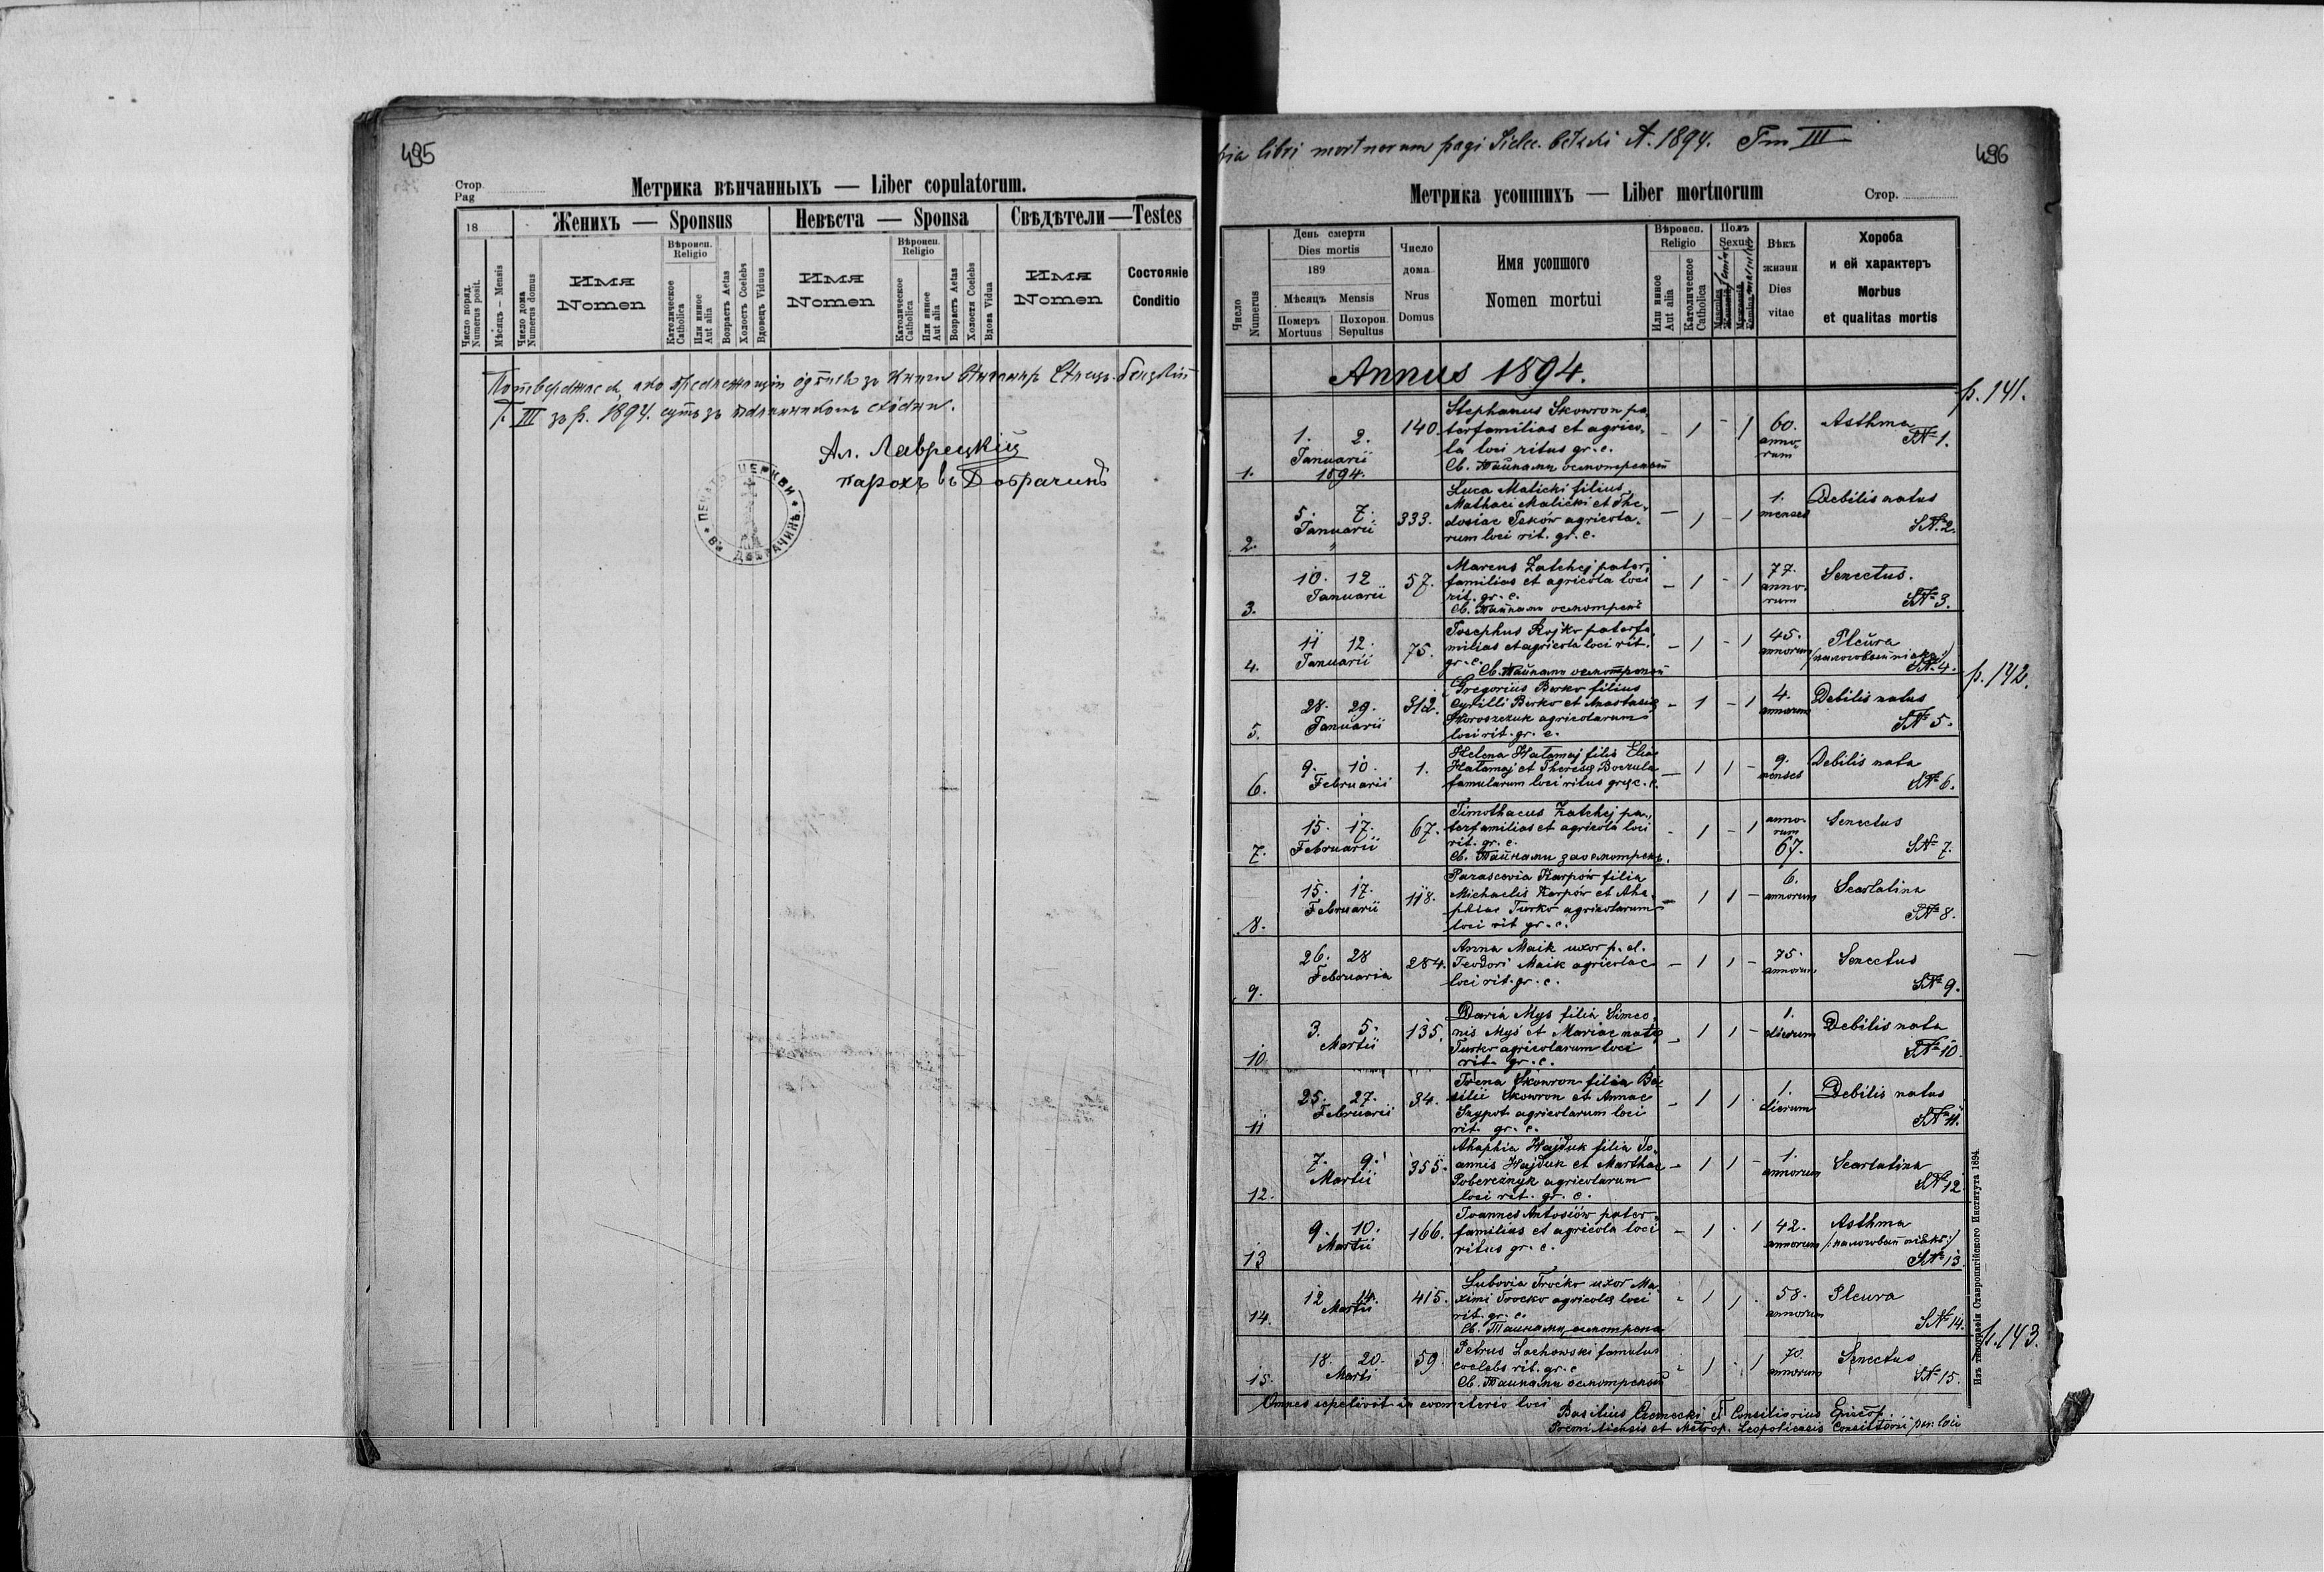 495
Стор.
Pag
Метрика вѣнчанныхъ — Liber copulatorum.
18
Женихъ — Sponsus
Невѣста — Sponsa
Свѣдѣтели — Testes
Число поряд. Numerus posit.
Мѣсяцъ — Mensis
Число дома Numerus domus
Имя
Nomen
Вѣроисп.
Religio
Католическое Catholica
Или инное Aut alia
Возрастъ Aetas
Холостъ Coelebs
Вдовецъ Viduus
Имя
Nomen
Вѣроисп.
Religio
Католическое Catholica
Или инное Aut alia
Возрастъ Aetas
Холоста Coelebs
Вдова Vidua
Имя
Nomen
Состояніе
Conditio
III зъ р. 1894.
Ал. Лаврецкій
парохъ въ Добрачинѣ
ПЕЧАТЬ ЦЕРКВИ * ВЪ ДОБРАЧИНѢ *
libri mortuorum pagi Sielec bełzki A. 1894. Tm III
496
Метрика усопшихъ — Liber mortuorum
Стор.
Число Numerus
День смерти
Dies mortis
189
Мѣсяцъ Mensis
Померъ
Mortuus
Похорон
Sepultus
Число
дома
Nrus
Domus
Имя усопшого
Nomen mortui
Вѣроисп.
Religio
Или инное Aut alia
Католическое Catholica
Полъ
Sexus
Вѣкъ
жизни
Dies
vitae
Хороба
и ей характеръ
Morbus
et qualitas mortis
Annus 1894.
p. 141.
1. 1. 2. Januarii 1894. 140
Stephanus Skowron pa-
terfamilias et agrico-
la loci ritus gr. c.
Св. Тайнами осмотреный
- 1 - 1 60. annorum Asthma SN 1.
2. 5. 7. Januarii 333.
Luca Malicki filius
Mathaei Malicki et The-
dosiae Seków agricola-
rum loci rit. gr. c.
— 1 - 1 1. menses Debilis natus SN 2.
3. 10. 12 Januarii 57.
Marcus Zatchej pater-
familias et agricola loci
rit. gr. c.
Св. Тайнами осмотренъ
- 1 - 1 77. annorum Senectus. SN 3.
4. 11 12. Januarii 75.
Josephus Rojko paterfa-
milias et agricola loci rit.
gr. c.
Св. Тайнами осмотреный
- 1 - 1 45. annorum Pleura SN 4.
p. 142.
5. 28. 29. Januarii 312.
Gregorius Berko filius
Cyrilli Berko et Anastasiae
Skoroszczuk agricolarum
loci rit. gr. c.
- 1 - 1 4. annorum Debilis natus SN 5.
6. 9. 10. Februarii 1.
Helena Hałamaj filia Eliae
Hałamaj et Theresiae Boczula
famularum loci ritus graec. c.
— 1 1 - 9. menses Debilis nata SN 6.
7. 15. 17. Februarii 67.
Timothaeus Zatchej pa-
terfamilias et agricola loci
rit. gr. c.
Св. Тайнами заосмотренъ.
- 1 - 1 annorum 67. Senectus SN 7.
8. 15. 17. Februarii 118.
Parascevia Karpów filia
Michaelis Karpów et Aha-
phiae Turko agricolarum
loci rit gr. c.
- 1 1 - 6. annorum Scarlatina SN 8.
9. 26. 28 Februaria 284.
Anna Maik uxor p. d.
Teodori Maik agricolae
loci rit. gr. c.
- 1 1 - 75. annorum Senectus SN 9.
10 3. 5. Martii 135.
Daria Mys filia Simeo-
nis Myś et Mariae natae
Turko agricolarum loci
rit. gr. c.
- 1 1 - 1. dierum Debilis nata SN 10.
11 25. 27. Februarii 34.
Irena Skowron filia Ba-
silii Skowron et Annae
Szypot agricolarum loci
rit. gr. c.
- 1 1 . 1. dierum Debilis natus SN 11.
12. 7. 9. Martii 355.
Ahaphia Hajduk filia Jo-
annis Hajduk et Marthae
Pobereżnyk agricolarum
loci rit. gr. c.
- 1 1 - 1. annorum Scarlatina SN 12
13 9. 10. Martii 166.
Joannes Antosiów pater-
familias et agricola loci
ritus gr. c.
- 1 . 1 42. annorum Asthma SN 13
14. 12 14. Martii 415.
Lubovia Troćko uxor Ma-
ximi Trocko agricolae loci
rit. gr. c.
Св. Тайнами осмотрена
- 1 1 . 58. annorum Pleura SN 14.
p. 143.
15. 18. 20. Marti 59.
Petrus Lachowski famulus
coelebs rit. gr. c
Св. Тайнами осмотреный
- 1 . 1 70. annorum Senectus SN 15.
Omnes sepelivit in coemeterio loci
Basilius Czernecki Consiliarius Episcop.
Premisliensis et Metrop. Leopoliensis Consistorii par. loci
Изъ типографіи Ставропигійского Института 1894.